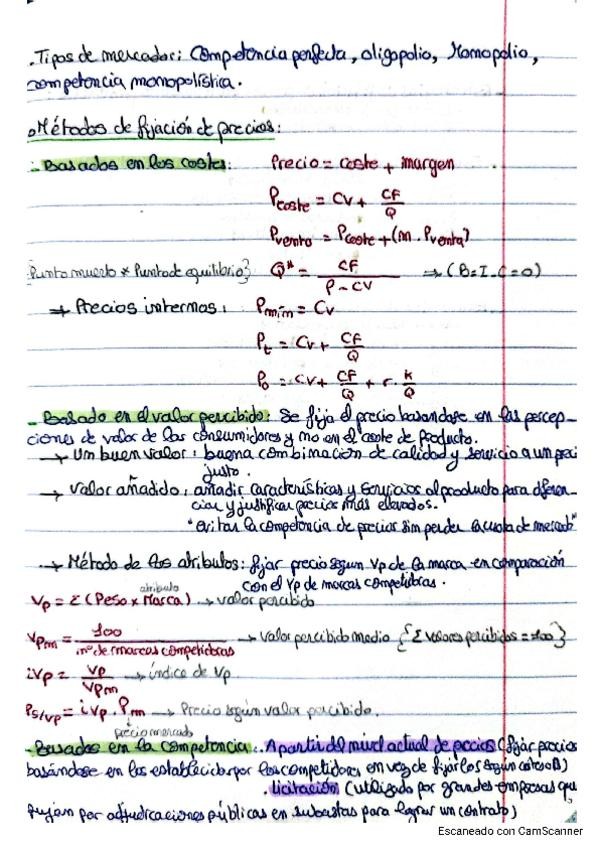 . Tipos de mercados: Competencia perfecta, oligopolio, Monopolio,
competencia monopolística.
Métodos de fijación de precios:
- Basados en los costes: Precio = coste + margen
Pcoste = Cv + CF/Q
Pventa = Pcoste + (m · Pventa)
{Punto muerto * Punto de equilibrio} Q* = CF / P - CV → (B = I - C = 0)
→ Precios internos: Pmín = Cv
Pt = Cv + CF/Q
Po = Cv + CF/Q + r · K/Q
- Basado en el valor percibido: Se fija el precio basandose en las percep-
ciones de valor de los consumidores y no en el coste de producto.
→ Un buen valor: buena combinación de calidad y servicio a un preci
justo.
→ Valor añadido: añadir características y servicios al producto para diferen-
ciar y justificar precios más elevados.
"evitar la competencia de precios sin perder la cuota de mercado"
→ Método de los atributos: fijar precio segun Vp de la marca en comparación
con el Vp de marcas competidoras.
Vp = Σ (Peso atributo x Marca) → valor percibido
Vpm = 100 / nº de marcas competidoras → Valor percibido medio {Σ valores percibidos = 100}
iVp = Vp / Vpm → índice de Vp.
Ps/vp = iVp · Pm → Precio según valor percibido.
precio mercado
- Basados en la competencia: . A partir del nivel actual de precios (fijar precios
basándose en los establecidos por los competidores en vez de fijarlos según costes o D)
. licitación (utilizado por grandes empresas que
pujan por adjudicaciones públicas en subastas para lograr un contrato)
Escaneado con CamScanner